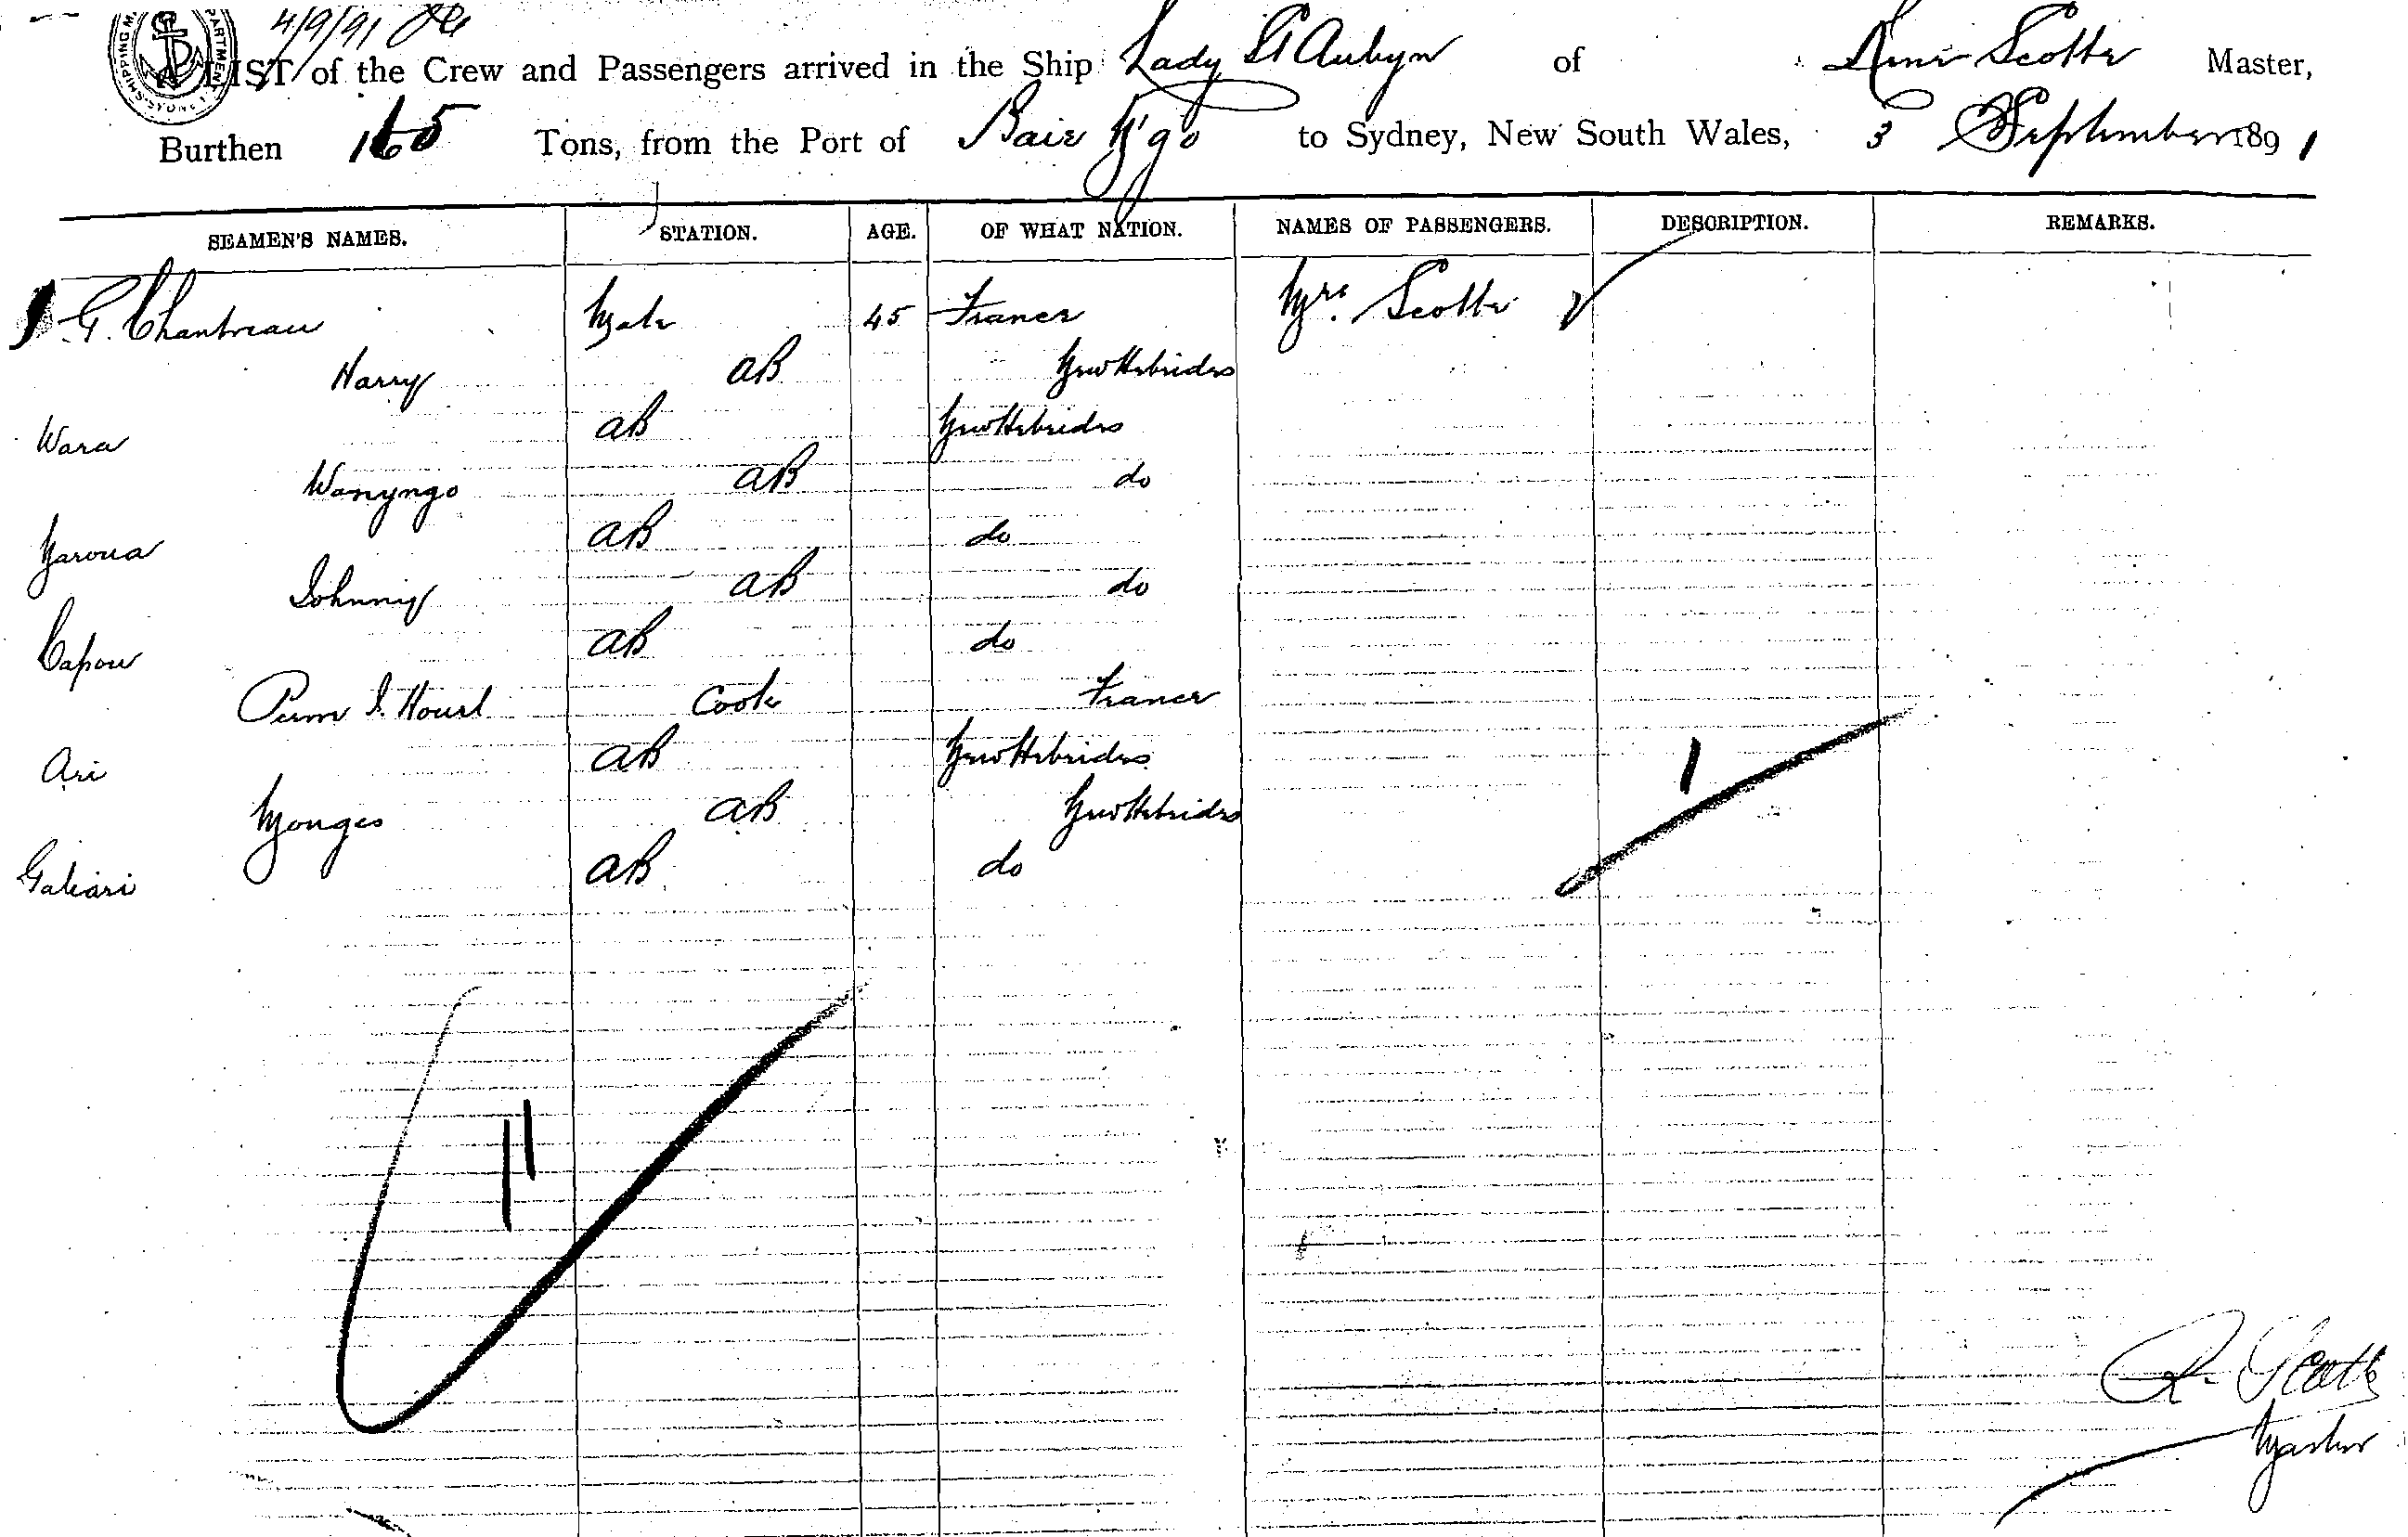 4/9/91
A LIST of the Crew and Passengers arrived in the Ship Lady St Aubyn of Scott Master,
Burthen 165 Tons, from the Port of Baie N'go to Sydney, New South Wales, 3 September 1891
SEAMEN'S NAMES. STATION. AGE. OF WHAT NATION. NAMES OF PASSENGERS. DESCRIPTION. REMARKS.
G. Chantreau Mate 45 France Mrs. Scott
Harry AB New Hebrides
Wara AB New Hebrides
Wanyngo AB do
Yaroua AB do
Johnny AB do
Capou AB do
Cook France
Ari AB New Hebrides
Monges AB New Hebrides
AB do
1
11
R. Scott
Master